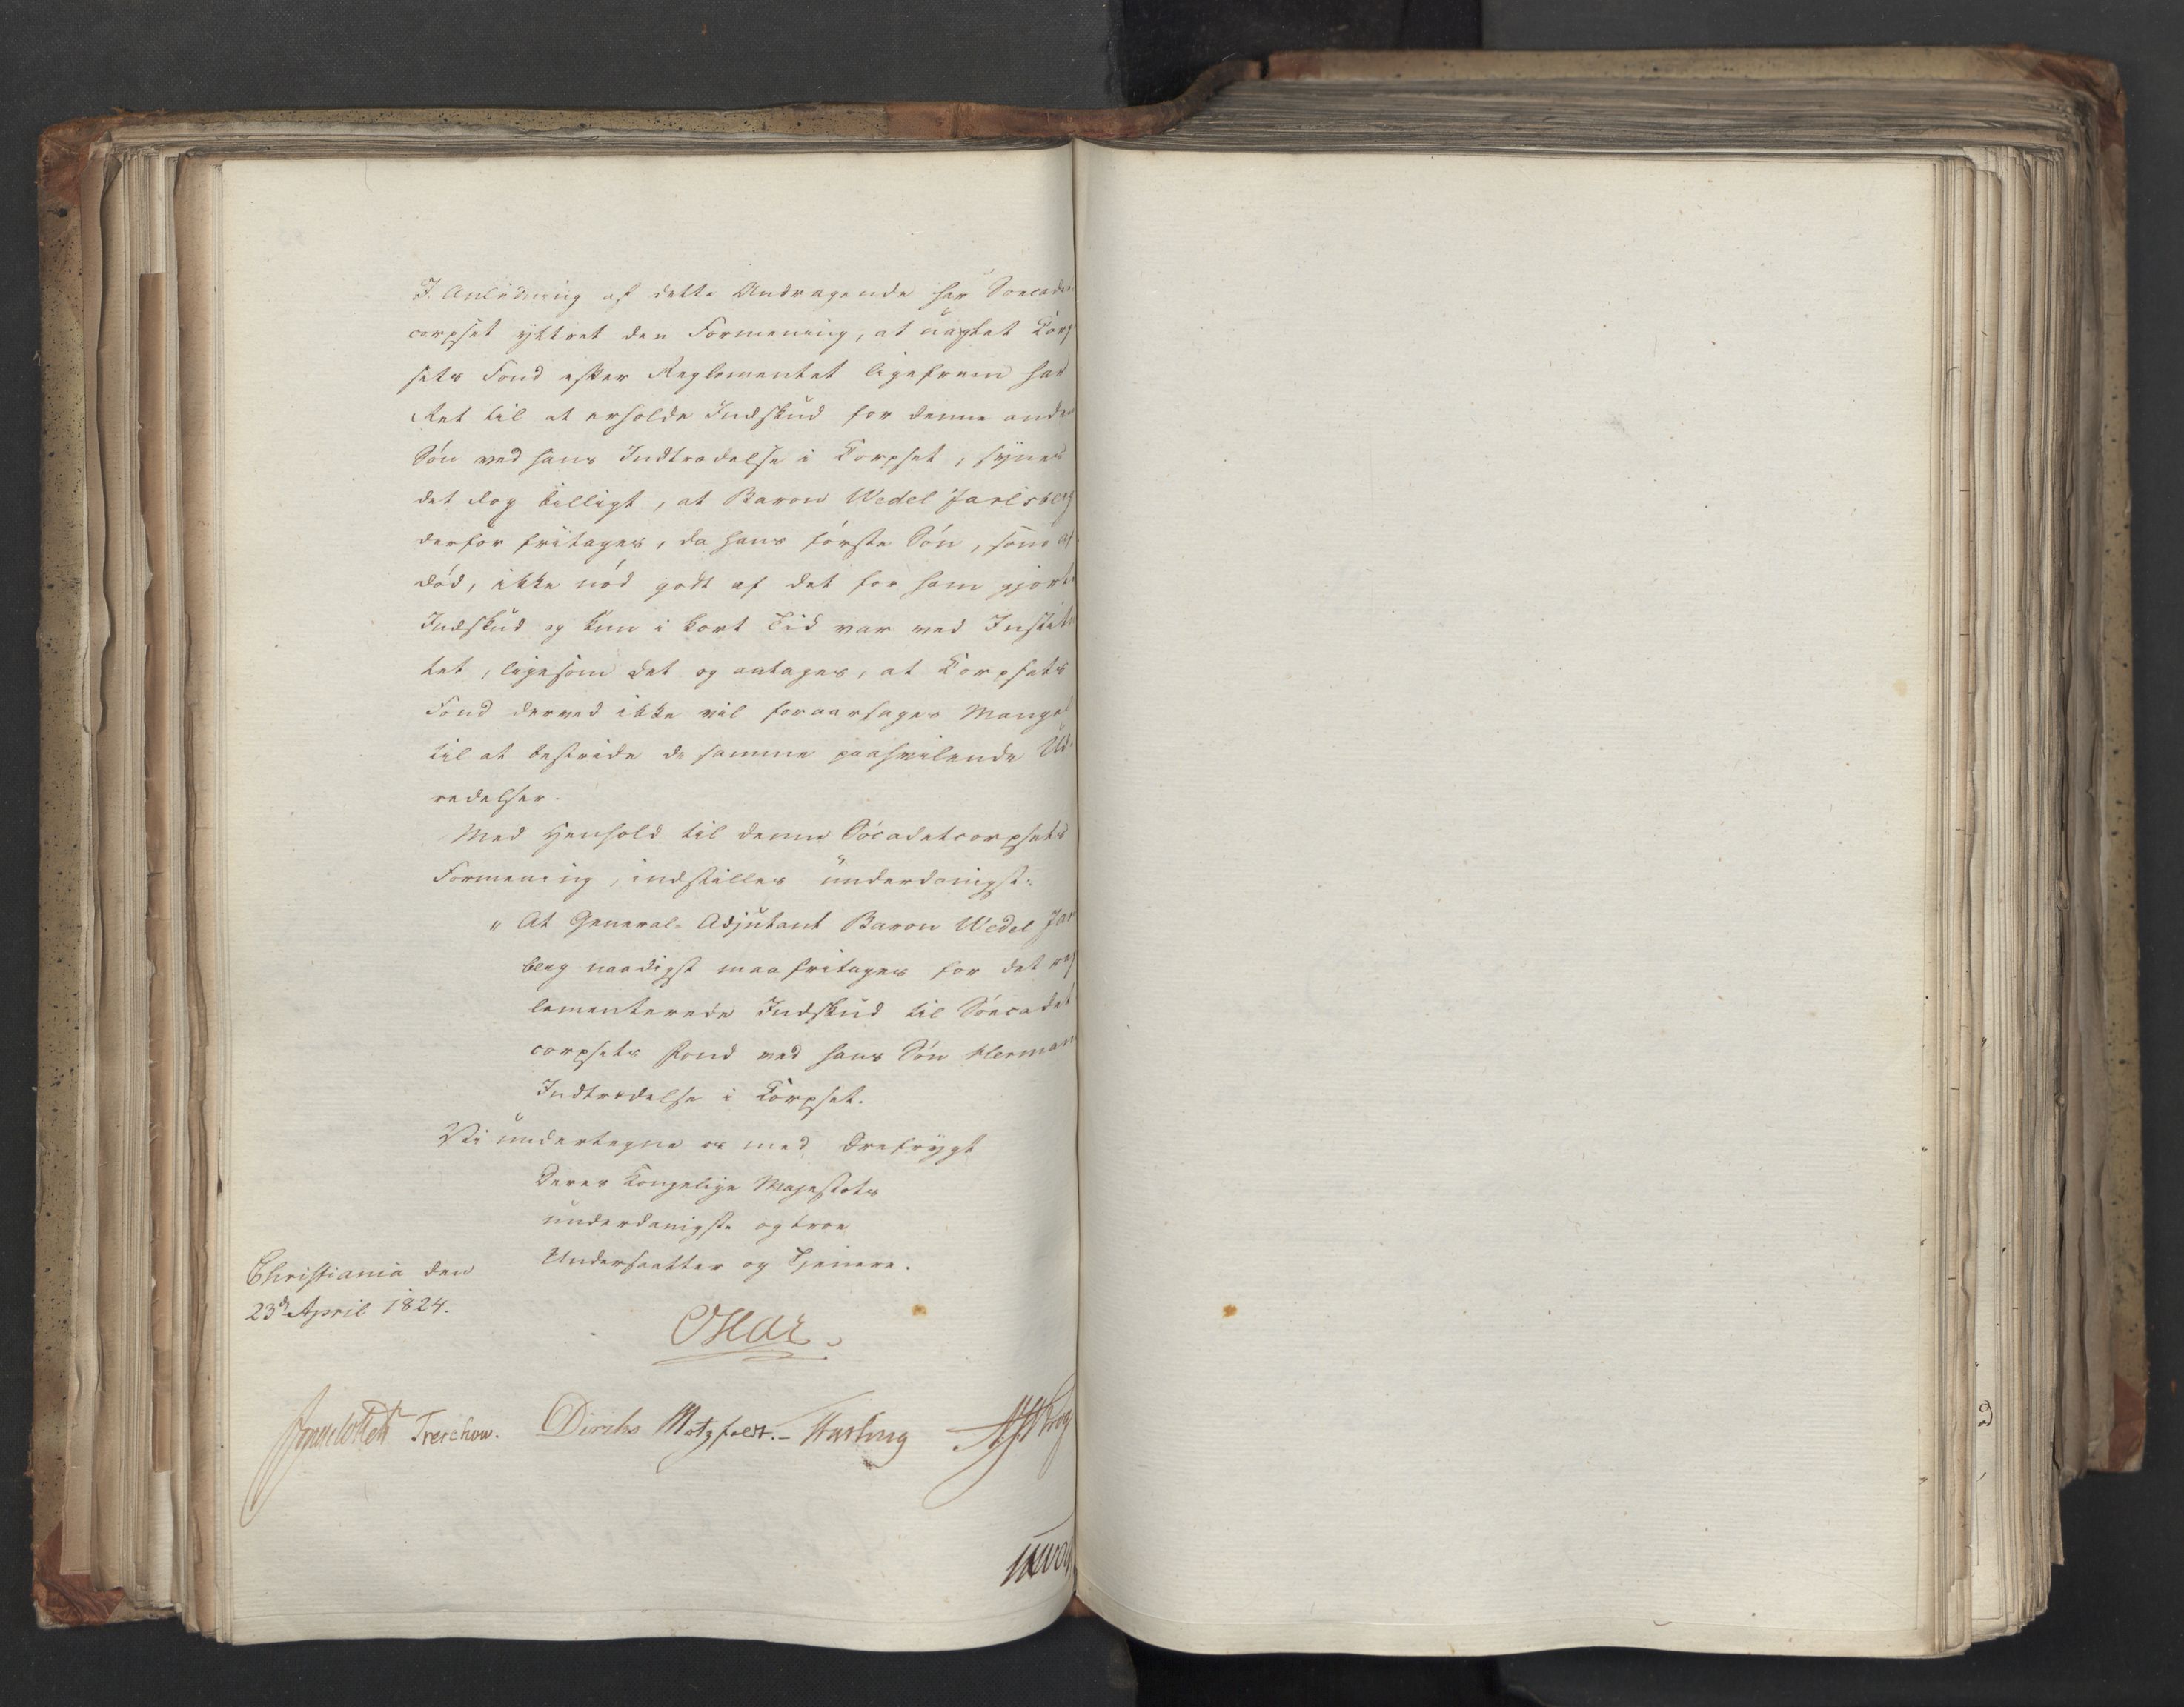 I Anledning af dette Andragende har Søecadet
corpset yttret den Formening, at uagtet Corp
sets Fond efter Reglementet ligefrem har
Ret til at erholde Indskud for denne anden
Søn ved hans Indtrædelse i Corpset, synes
det dog billigt, at Baron Wedel Jarlsberg
derfor fritages, da hans første Søn, som af
død, ikke nød godt af det for ham gjorte
Indskud og kun i kort Tid var ved Institu
tet, ligesom det og antages, at Corpsets
Fond derved ikke vil foraarsages Mangel
til at bestride de samme paahvilende Ud-
redelser.
Med Henhold til denne Søcadetcorpsets
Formening, indstilles underdanigst:
" At General-Adjutant Baron Wedel Jar
berg naadigst maa fritages for det reg
lementerede Indskud til Søecadet
corpsets Fond ved hans Søn Herman
Indtrædelse i Corpset.
Vi undertegne os med Ærefrygt
Deres Kongelige Majestæts
underdanigste og troe
Undersaatter og Tjenere.
Christiania den
23d April 1824.
Oscar.
Treschow. Diriks Motzfeldt.- Fasting